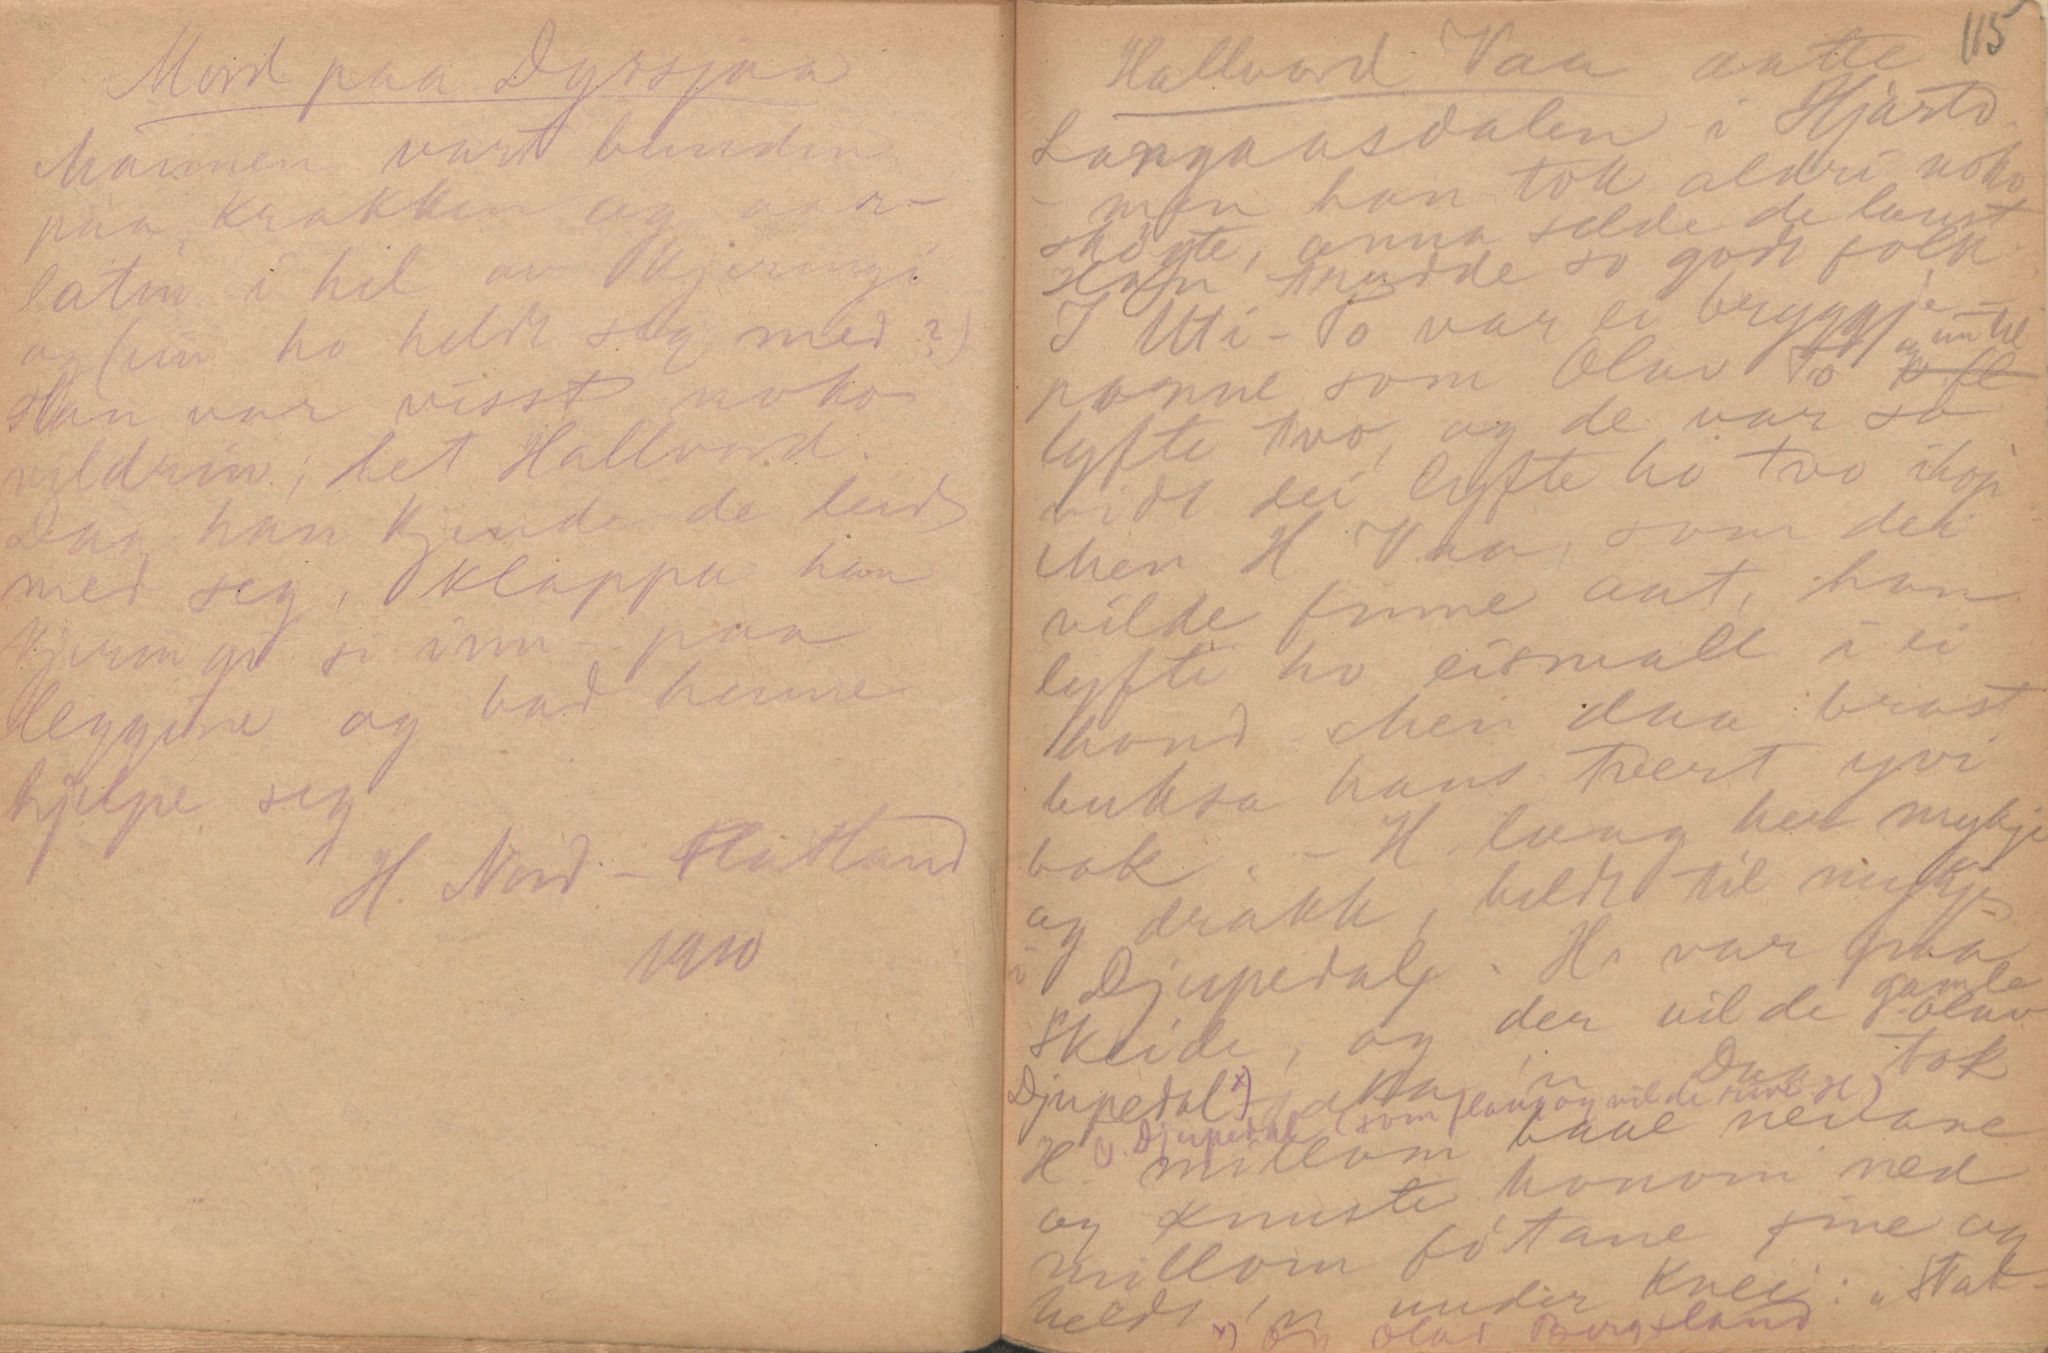 Mord paa Dyrsjaa
Mannen vart bunden
paa krakken og aar-
latin i hel av kjeringi
og (ein ho heldt seg med?)
Han var visst noko
vildrin; het Hallvord.
Daa han kjende de leid
med seg, klappa han
kjeringi si inn-paa
leggine og bad henne
hjelpe seg
H. Nord-Flatland
1910
115
Hallvord Vaa aatte
Langaasdalen i Hjartd.
- men han tok aldri noko
skøyte, anna selde de laust.
Han trudde so godt folk.
I Uti-Bø var ei bryggje-
panne som Olav Bø og ein til
lyfte tvo, og de var so
vidt dei lyfte ho tvo ihop
Men H Vaa, som dei
vilde finne aat, han
lyfte ho eismall i ei
hond. Men daa brast
buksa hans tvert yvi
bak. - H. laag her mykje
og drakk, heldt til mykje
i Djupedal. H. var paa
Skeide, og der vilde gamle Olav
Djupedal x) Daa tok
(O. Djupedal (som flaug og vilde rive H)
H. millom baae nevane
og knuste honom ned
millom føtane sine og
heldt 'n under knei: "Stat-
x) Olav Bergsland